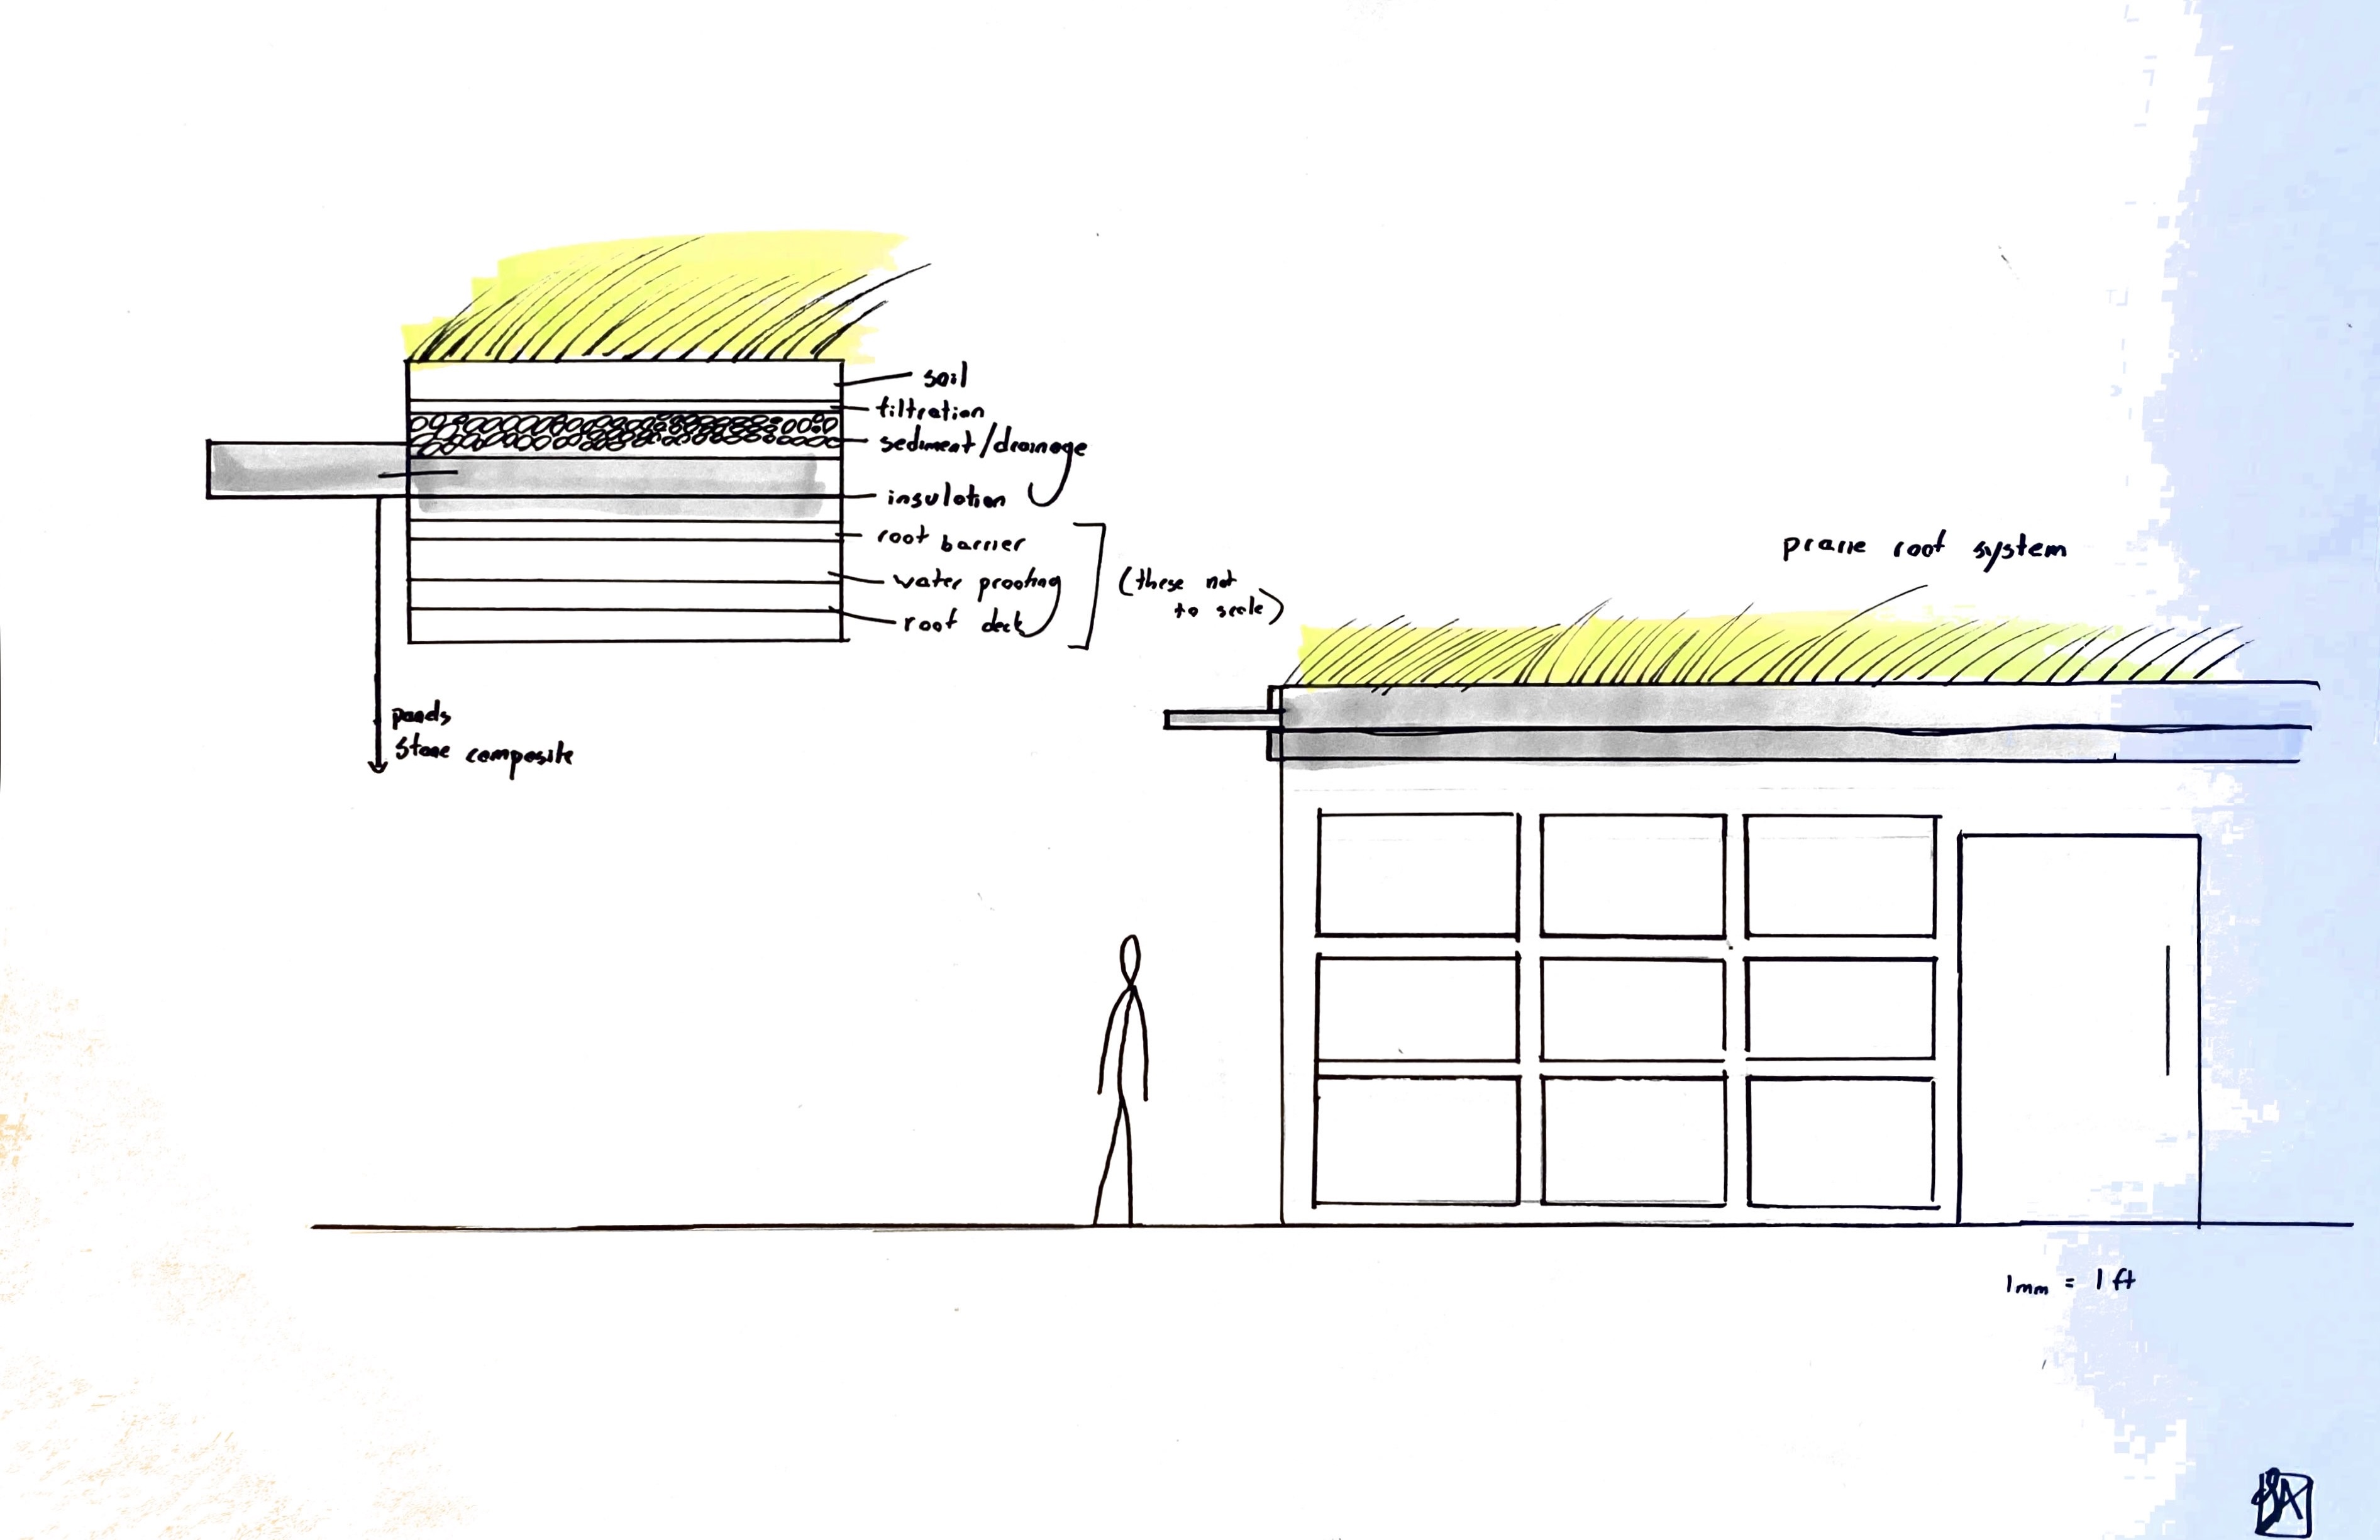 soil
filtration
sediment/drainage
insulation
root barrier
water proofing
roof deck
(these not
to scale)
stone composite
prarie roof system
1mm = 1 ft